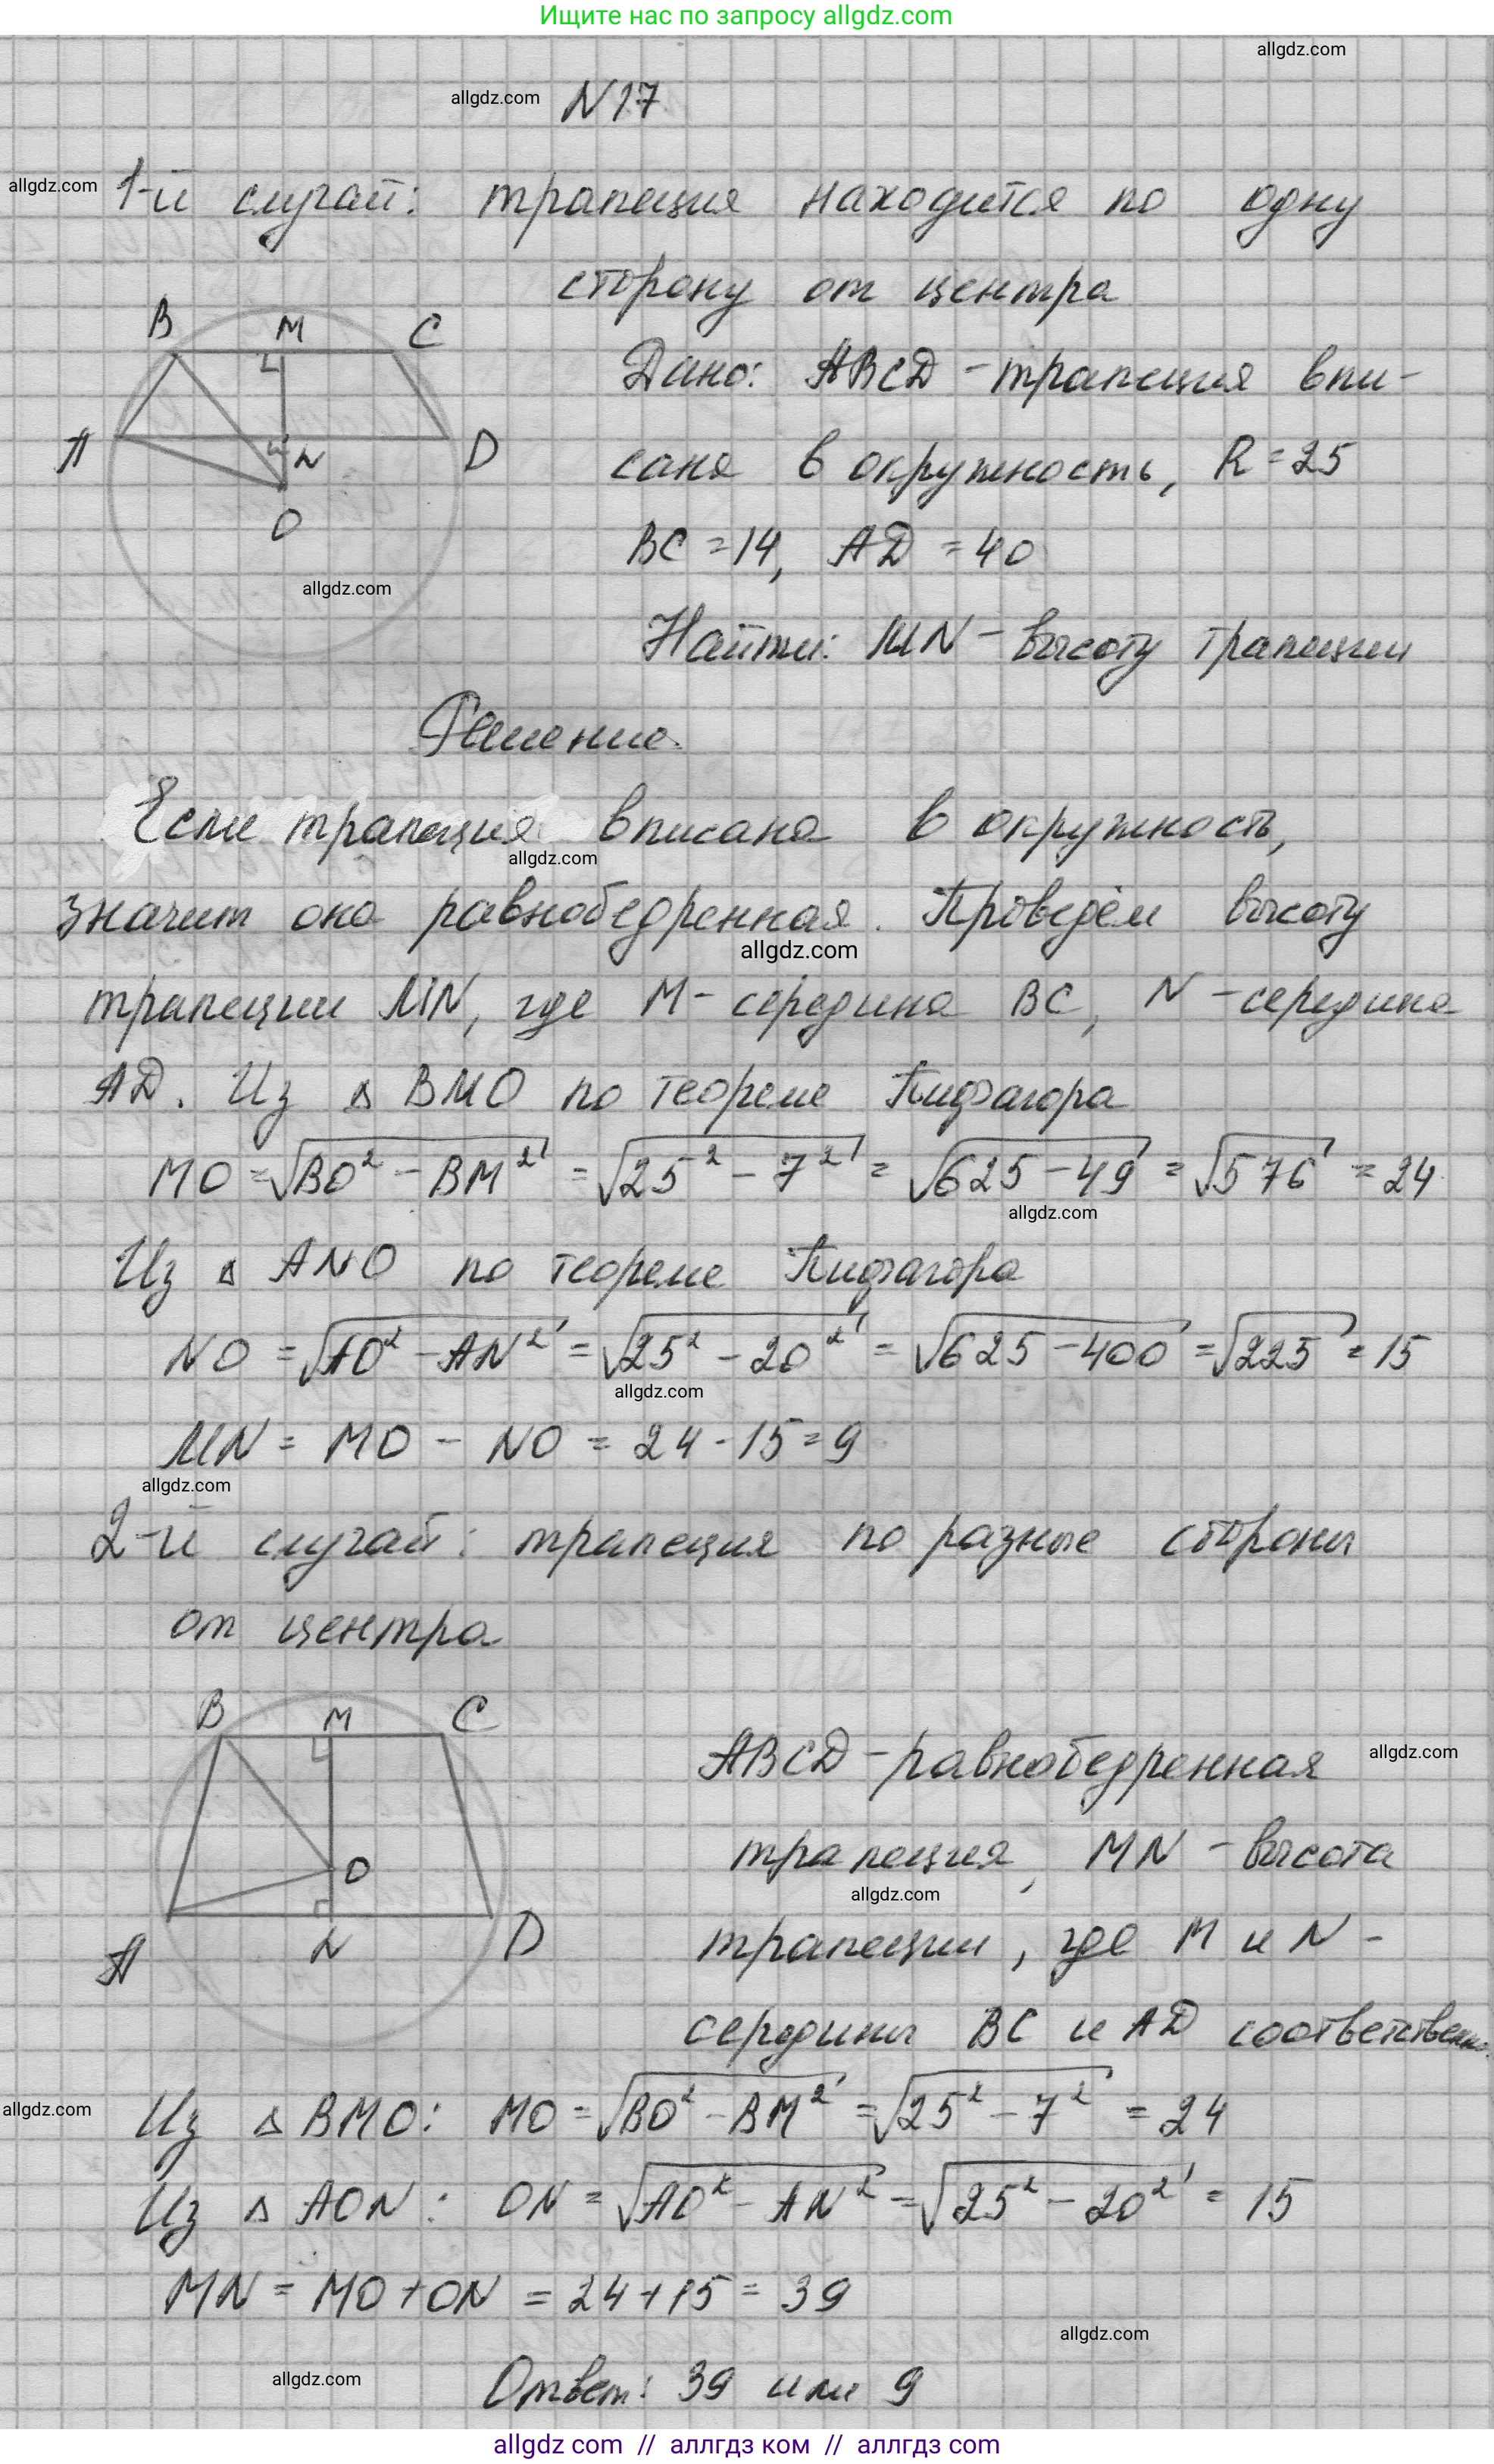 Ищите нас по запросу allgdz.com
allgdz.com
allgdz.com N17
allgdz.com 1-й случай: трапеция находится по одну
сторону от центра
B M C
Дано: ABCD - трапеция впи-
A N D
сана в окружность, R = 25
O
BC = 14, AD = 40
allgdz.com
Найти: MN - высоту трапеции
Решение.
Если трапеция вписана в окружность,
allgdz.com
значит она равнобедренная. Проведём высоту
allgdz.com
трапеции MN, где M - середина BC, N - середина
AD. Из △ BMO по теореме Пифагора
MO = √(BO² - BM²) = √(25² - 7²) = √(625 - 49) = √576 = 24
allgdz.com
Из △ ANO по теореме Пифагора
NO = √(AO² - AN²) = √(25² - 20²) = √(625 - 400) = √225 = 15
allgdz.com
MN = MO - NO = 24 - 15 = 9
allgdz.com
2-й случай: трапеция по разные стороны
от центра
B M C
ABCD - равнобедренная allgdz.com
O
трапеция, MN - высота
allgdz.com
A N D
трапеции, где M и N -
середины BC и AD соответственно.
allgdz.com Из △ BMO: MO = √(BO² - BM²) = √(25² - 7²) = 24
Из △ AON: ON = √(AO² - AN²) = √(25² - 20²) = 15
MN = MO + ON = 24 + 15 = 39
allgdz.com
allgdz.com Ответ: 39 или 9
allgdz com // аллгдз ком // аллгdz com